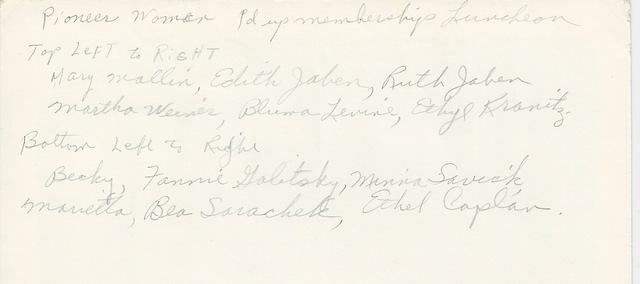 Pioneer Women Pd up membership Luncheon
Top Left to Right
Mary Mallin, Edith Jaben, Ruth Jaben
Martha Weiner, Bluma Levine, Ethyl Kranitz
Bottom Left to Right
Becky, Fannie Golitsky, Minna Savick
Marietta, Bea Sarachek, Ethel Caplan.